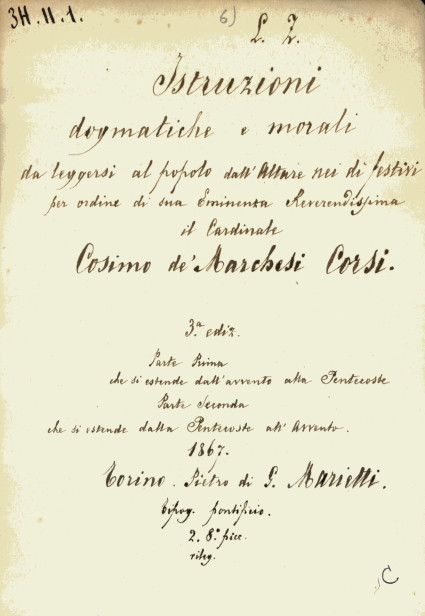 3H.II.1.
6)
L. Z.
Istruzioni
dogmatiche e morali
da leggersi al popolo dall'Altare nei dì festivi
per ordine di sua Eminenza Reverendissima
il Cardinale
Cosimo de' Marchesi Corsi.
3.a ediz.
Parte Prima
che si estende dall'avvento alla Pentecoste
Parte Seconda
che si estende dalla Pentecoste all'Avvento.
1867.
Torino. Pietro di G. Marietti.
tipog. pontificio.
2. 8.° picc.
rileg.
C